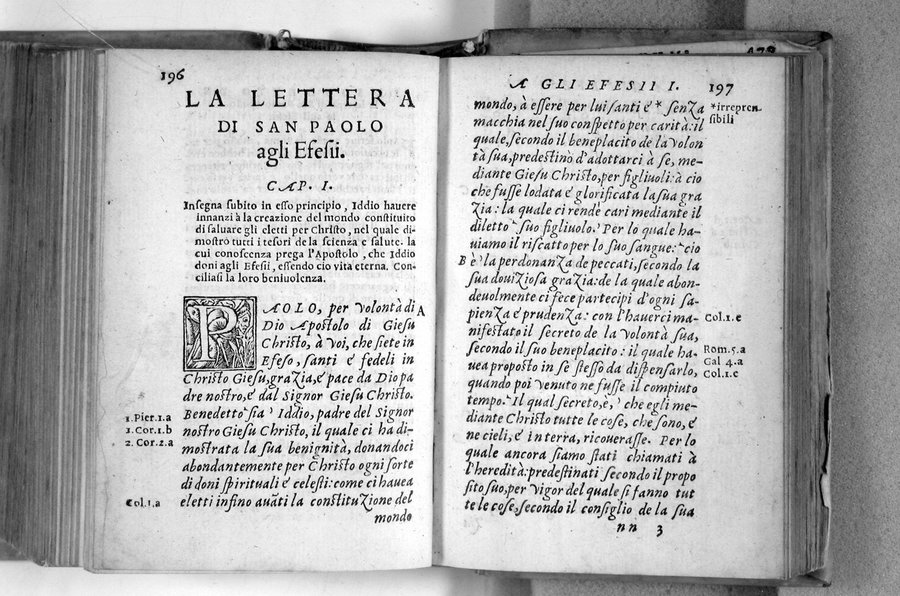 196
LA LETTERA
DI SAN PAOLO
agli Efesii.
CAP. I.
Insegna subito in esso principio, Iddio hauere
innanzi à la creazione del mondo constituito
di saluare gli eletti per Christo, nel quale di-
mostro tutti i tesori de la scienza e salute. la
cui conoscenza prega l'Apostolo, che Iddio
doni agli Efesii, essendo cio vita eterna. Con-
ciliasi la loro beniuolenza.
PAOLO, per volontà di A
Dio Apostolo di Giesu
Christo, à voi, che siete in
Efeso, santi é fedeli in
Christo Giesu, grazia, é pace da Dio pa
dre nostro, é dal Signor Giesu Christo.
Benedetto sia Iddio, padre del Signor
1.Pier.1.a
nostro Giesu Christo, il quale ci ha di-
1.Cor.1.b
mostrata la sua benignità, donandoci
2.Cor.2.a
abondantemente per Christo ogni sorte
di doni spirituali é celesti: come ci hauea
eletti infino auāti la constituzione del
Col.1.a
mondo
A GLI EFESII I. 197
mondo, à essere per lui santi é * senza
*irrepren
sibili
macchia nel suo conspetto per carità: il
quale, secondo il beneplacito de la volon
tà sua, predestinò d'adottarci à se, me-
diante Giesu Christo, per figliuoli: à cio
che fusse lodata é glorificata la sua gra
zia: la quale ci rende cari mediante il
diletto suo figliuolo. Per lo quale ha-
uiamo il riscatto per lo suo sangue: cio
B è la perdonanza de peccati, secondo la
sua douiziosa grazia: de la quale abon-
deuolmente ci fece partecipi d'ogni sa-
pienza é prudenza: con l'hauerci ma-
Col.1.e
nifestato il secreto de la volontà sua,
secondo il suo beneplacito: il quale ha-
Rom.5.a
uea proposto in se stesso da dispensarlo,
Gal.4.a
quando poi venuto ne fusse il compiuto
Col.1.c
tempo. Il qual secreto, é, che egli me-
diante Christo tutte le cose, che sono, é
ne cieli, é in terra, ricouerasse. Per lo
quale ancora siamo stati chiamati à
l'heredità: predestinati secondo il propo
sito suo, per vigor del quale si fanno tut
te le cose, secondo il consiglio de la sua
nn 3